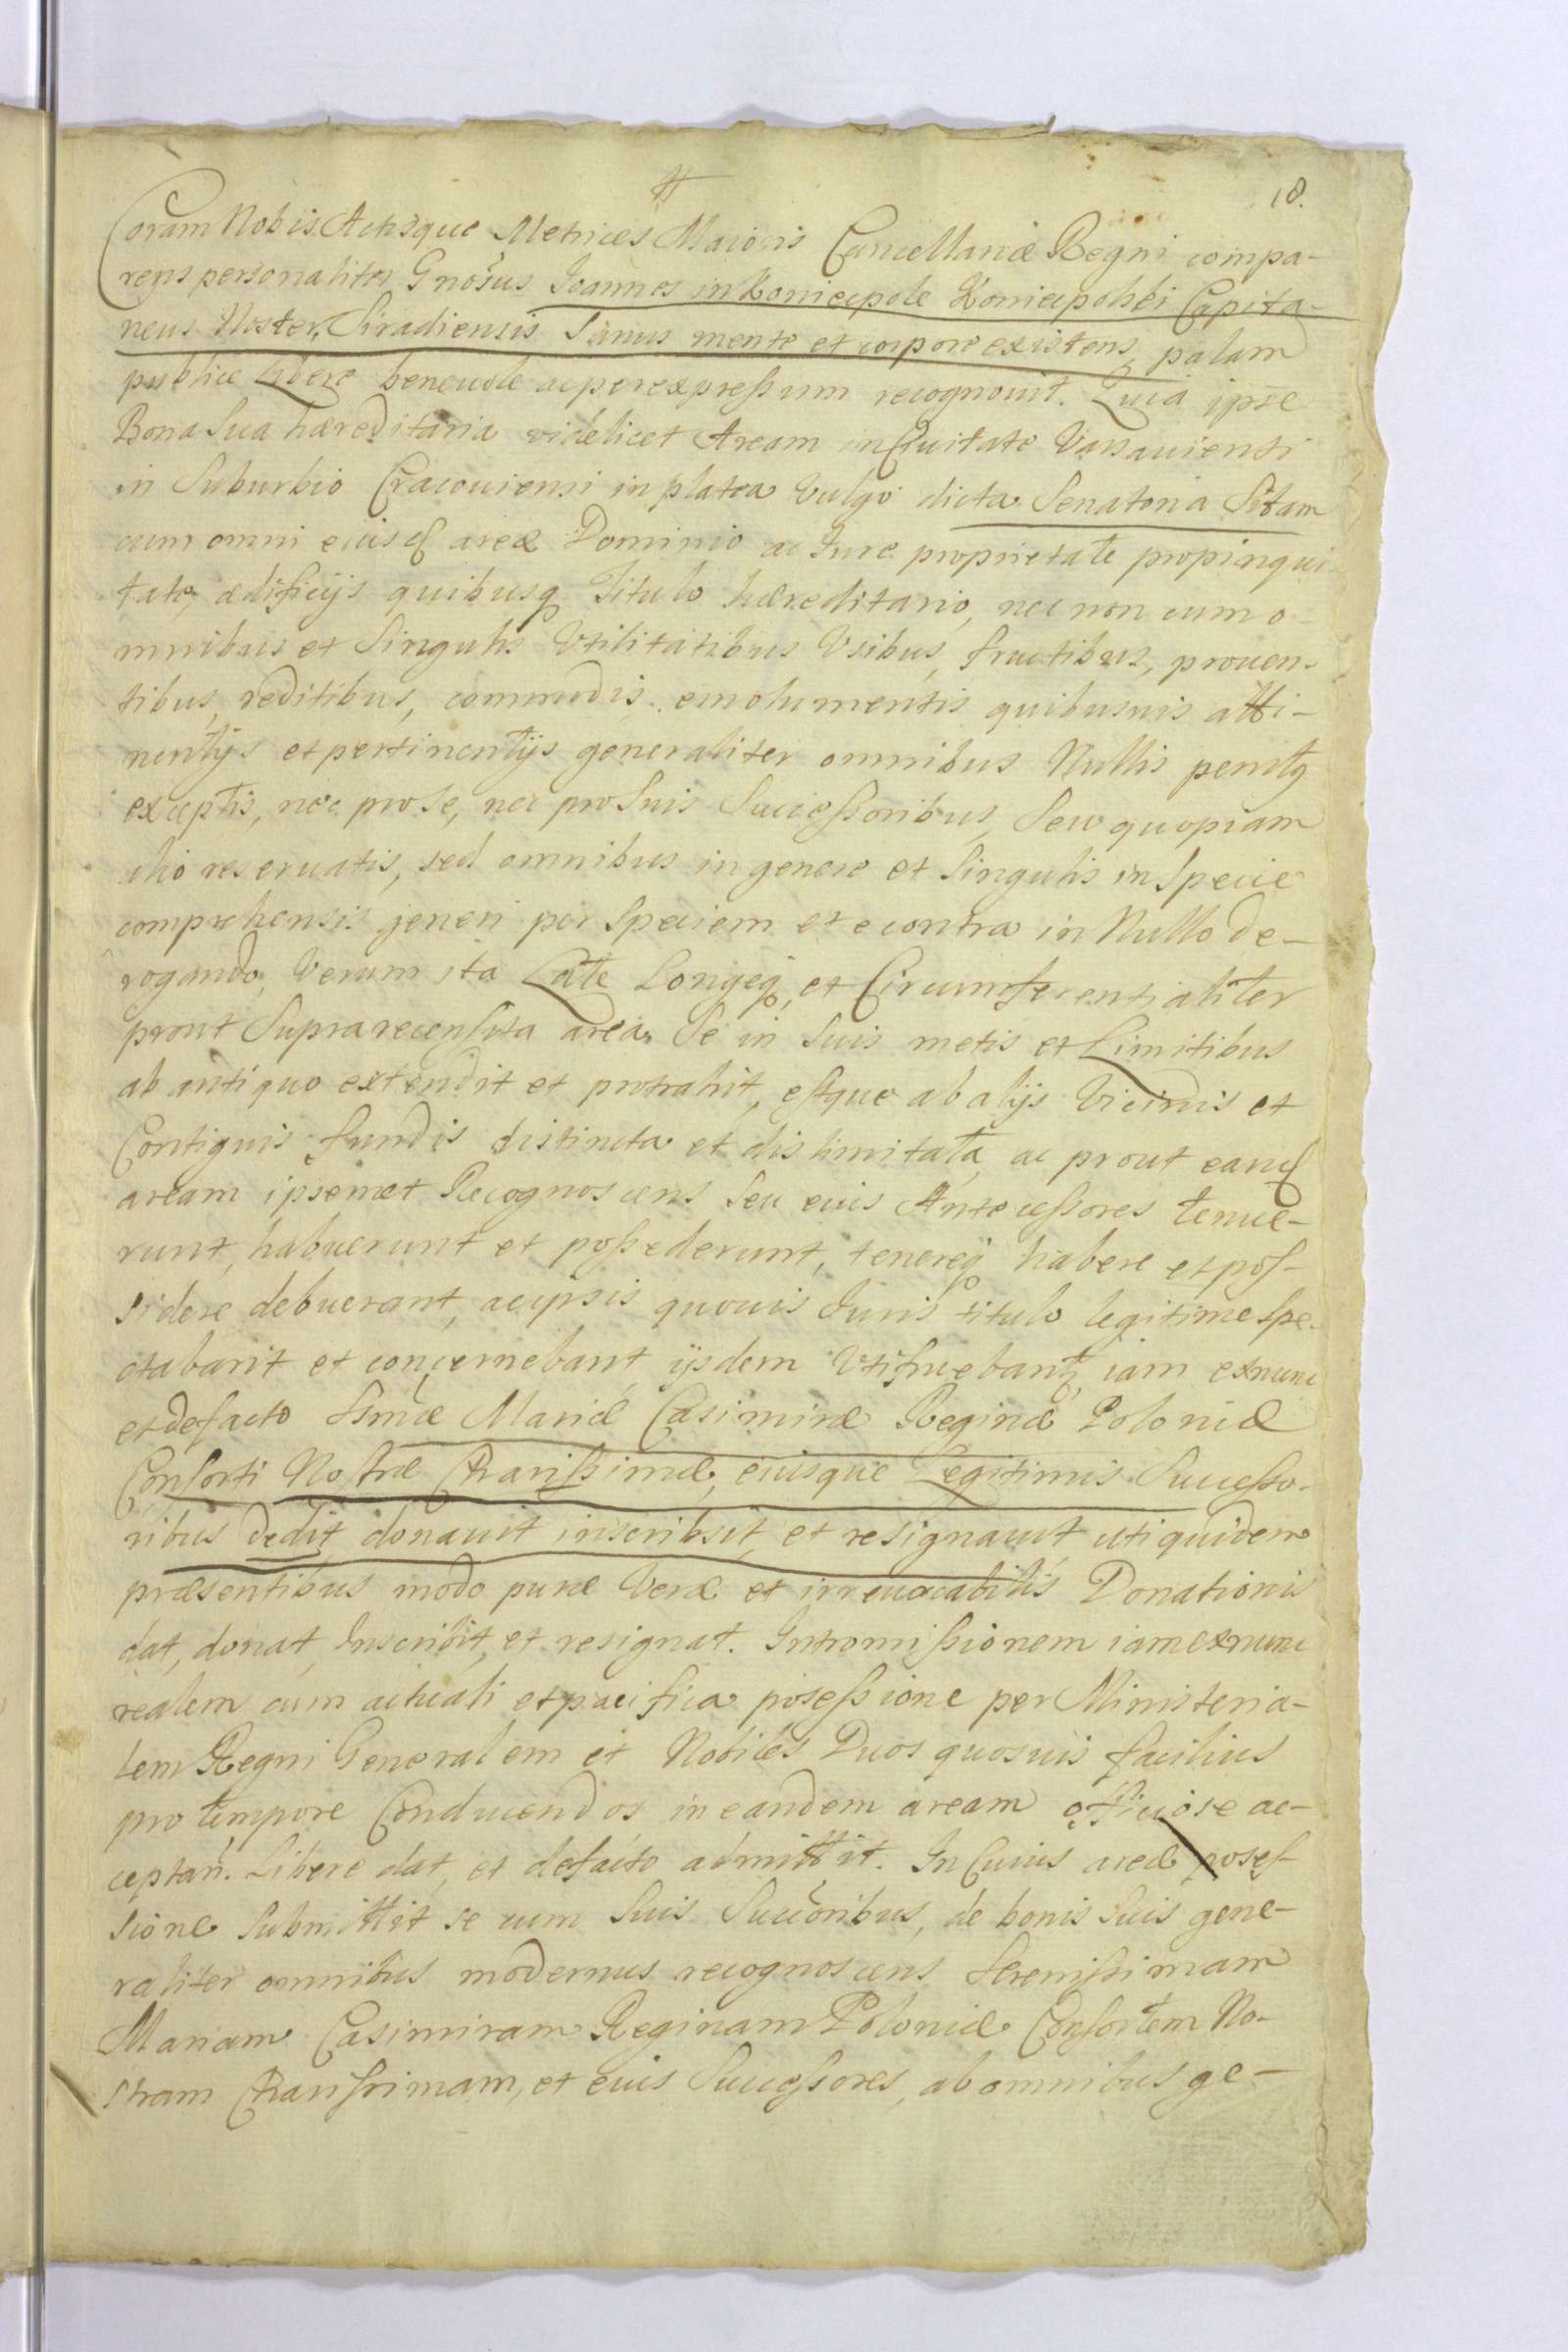 18.
Coram Nobis Actisque Metrices Maioris Cancellariæ Regni compa-
rens personaliter Gnosus Joannes in Koniecpole Koniecpolski Capita-
neus Noster Siradiensis Sanus mente et corpore existens, palam
publice Libere beneuole ac per expressum recognouit. Quia ipse
Bona Sua hæreditaria videlicet Aream in Ciuitate Varsauiensi
in Suburbio Cracouiensi in platea Vulgo dicta Senatoria Sitam
cum omni eiusq areæ Dominio ac Jure proprietate propinqui-
tate, ædificijs quibusq Titulo hæreditario, nec non cum o-
mnibus et Singulis Vtilitatibus Vsibus, fructibus, prouen-
tibus, reditibus, commodis emolumentis quibusuis atti-
nentijs et pertinentijs generaliter omnibus Nullis penitq
exceptis, nec pro Se, nec pro Suis Successoribus, Seu quopiam
alio reseruatis, sed omnibus in genere et Singulis in Specie
comprehensis generi per Speciem et e contra in Nullo de-
rogando, Verum ita Late Longeq, et Circumferentialiter
prout Supra recensita area Se in Suis metis et Limitibus
ab antiquo extendit et protrahit, estque ab alijs Vicinis et
Contiguis fundis distincta et dislimitata, ac prout eand
aream ipsemet Recognoscens Seu eius Antecessores tenue-
runt, habuerunt et possederunt, tenereq habere et pos-
sidere debuerant, ac ipsis quouis Juris titulo legitime spe-
ctabant et concernebant, ijsdem Vtifruebantq iam ex nunc
et de facto Ssmæ Mariæ Casimiræ Reginæ Poloniæ
Consorti Nostræ Charissimæ, eiusque Legitimis Successo-
ribus dedit donauit inscribsit, et resignauit uti quidem
præsentibus modo puræ Veræ et irreuocabilis Donationis
dat, donat, Inscribit, et resignat. Intromissionem iam ex nunc
realem cum actuali et pacifica posessione per Ministeria-
lem Regni Generalem et Nobiles Duos quosuis facilius
pro tempore Conducendos in eandem aream officiose ac-
ceptan. Libere dat, et defacto admittit. In Cuius areæ poses-
sione Submittit se cum Suis Succoribus, de bonis Suis gene-
raliter omnibus modernus recognoscens Serenissimam
Mariam Casimiram Reginam Poloniæ Consortem No-
stram Charissimam, et eius Successores, ab omnibus ge-